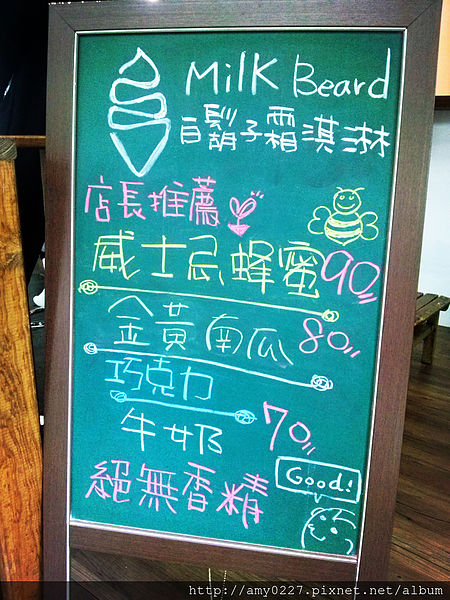 Milk Beard
白鬍子霜淇淋
店長推薦
威士忌蜂蜜90
金黃南瓜 80
巧克力
牛奶 70
絕無香精
Good!
http://amy0227.pixnet.net/album